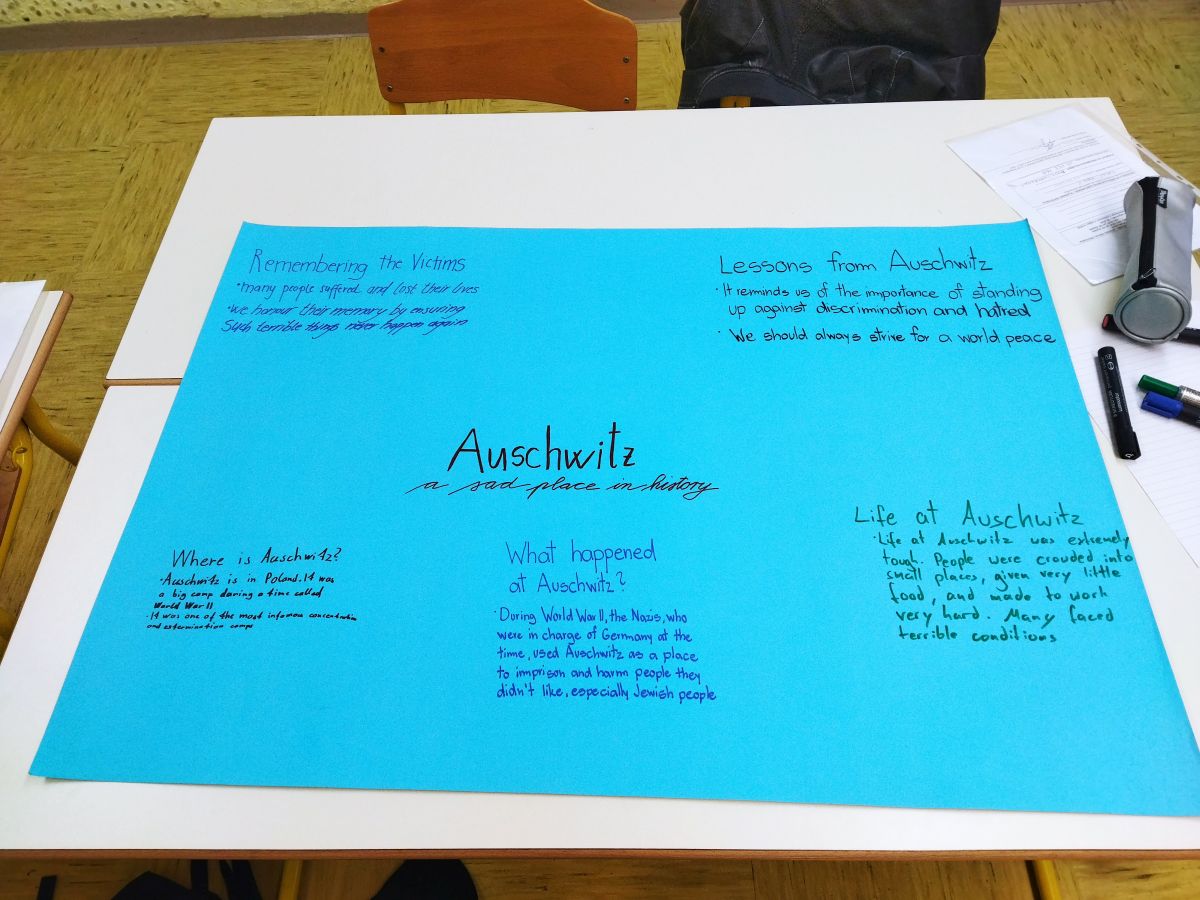 Remembering the Victims
• many people suffered and lost their lives
• we honour their memory by ensuring
Such terrible things never happen again
Lessons from Auschwitz
• It reminds us of the importance of standing
up against discrimination and hatred
• We should always strive for a world peace
Auschwitz
a sad place in history
Where is Auschwitz?
• Auschwitz is in Poland. It was
a big camp during a time called
World War II
• It was one of the most infamous concentration
and extermination camps
What happened
at Auschwitz?
• During World War II, the Nazis, who
were in charge of Germany at the
time, used Auschwitz as a place
to imprison and harm people they
didn't like, especially Jewish people
Life at Auschwitz
• Life at Auschwitz was extremely
tough. People were crouded into
small places, given very little
food, and made to work
very hard. Many faced
terrible conditions